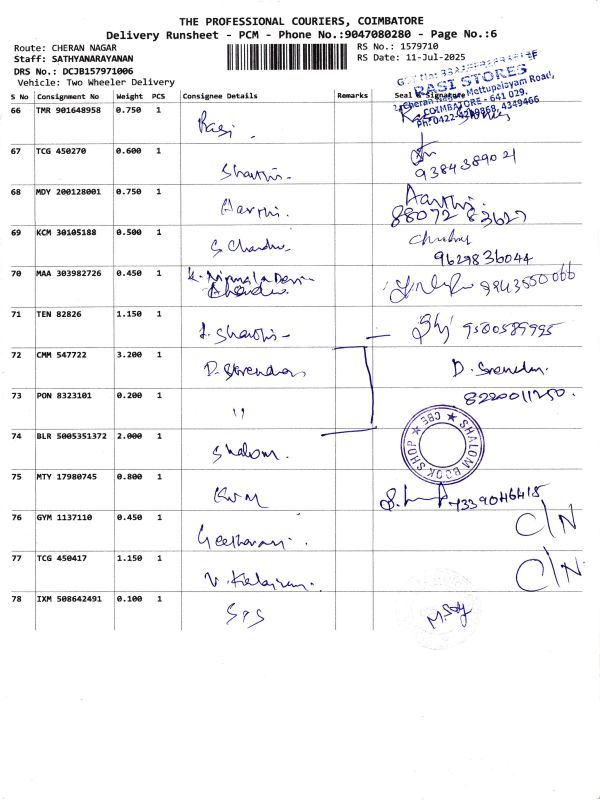 THE PROFESSIONAL COURIERS, COIMBATORE
Delivery Runsheet - PCM - Phone No.:9047080280 - Page No.:6
Route: CHERAN NAGAR
RS No.: 1579710
Staff: SATHYANARAYANAN
RS Date: 11-Jul-2025
DRS No.: DCJB157971006
Vehicle: Two Wheeler Delivery
RASI STORES
Cheran Nagar, Mettupalayam Road,
COIMBATORE - 641 029.
S No Consignment No Weight PCS Consignee Details Remarks Seal & Signature
66 TMR 901648958 0.750 1 Rasi.
67 TCG 450270 0.600 1 Sharthi-
9384389021
68 MDY 200128001 0.750 1 Aarthi. Aarthi.
88072 83627
69 KCM 30105188 0.500 1 S Chandru.
9629836044
70 MAA 303982726 0.450 1 K. Nirmala Devi
9943550066
71 TEN 82826 1.150 1 J. Sharthi- 9500589995
72 CMM 547722 3.200 1 D. Surendar D. Surendar.
73 PON 8323101 0.200 1 " 8220011250.
74 BLR 5005351372 2.000 1 Shalom. SHALOM BOOK SHOP CBE
75 MTY 17980745 0.800 1 KVM
76 GYM 1137110 0.450 1 C/N
77 TCG 450417 1.150 1 C/N
78 IXM 508642491 0.100 1 SPS